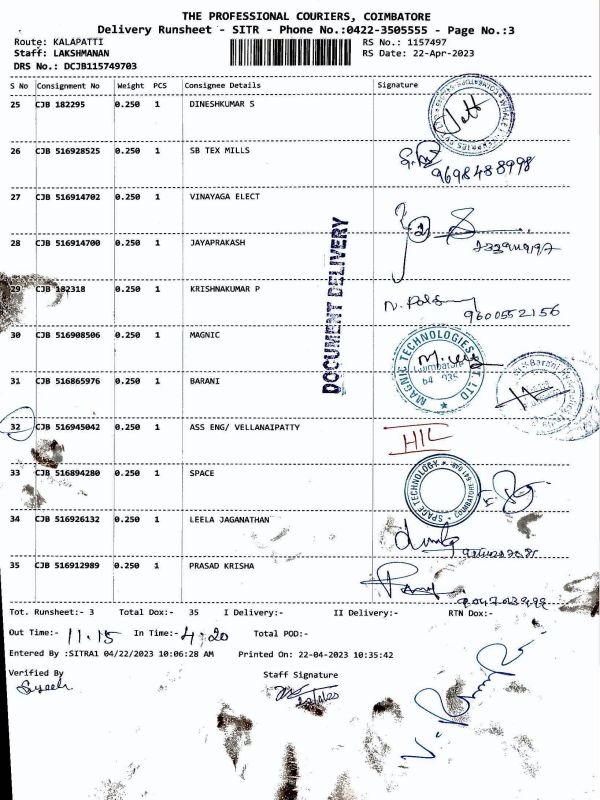 THE PROFESSIONAL COURIERS, COIMBATORE
Delivery Runsheet - SITR - Phone No.:0422-3505555 - Page No.:3
Route: KALAPATTI RS No.: 1157497
Staff: LAKSHMANAN RS Date: 22-Apr-2023
DRS No.: DCJB115749703
S No Consignment No Weight PCS Consignee Details Signature
25 CJB 182295 0.250 1 DINESHKUMAR S
26 CJB 516928525 0.250 1 SB TEX MILLS
9698488998
27 CJB 516914702 0.250 1 VINAYAGA ELECT
2
28 CJB 516914700 0.250 1 JAYAPRAKASH
DOCUMENT DELIVERY
29 CJB 182318 0.250 1 KRISHNAKUMAR P
9600552156
30 CJB 516908506 0.250 1 MAGNIC
MAGNIC TECHNOLOGIES PVT LTD
Coimbatore
31 CJB 516865976 0.250 1 BARANI
32 CJB 516945042 0.250 1 ASS ENG/ VELLANAIPATTY
HIL
33 CJB 516894280 0.250 1 SPACE
SPACE TECHNOLOGY
COIMBATORE
34 CJB 516926132 0.250 1 LEELA JAGANATHAN
35 CJB 516912989 0.250 1 PRASAD KRISHA
Tot. Runsheet:- 3 Total Dox:- 35 I Delivery:- II Delivery:- RTN Dox:-
Out Time:- 11.15 In Time:- 4:20 Total POD:-
Entered By :SITRA1 04/22/2023 10:06:28 AM Printed On: 22-04-2023 10:35:42
Verified By Staff Signature